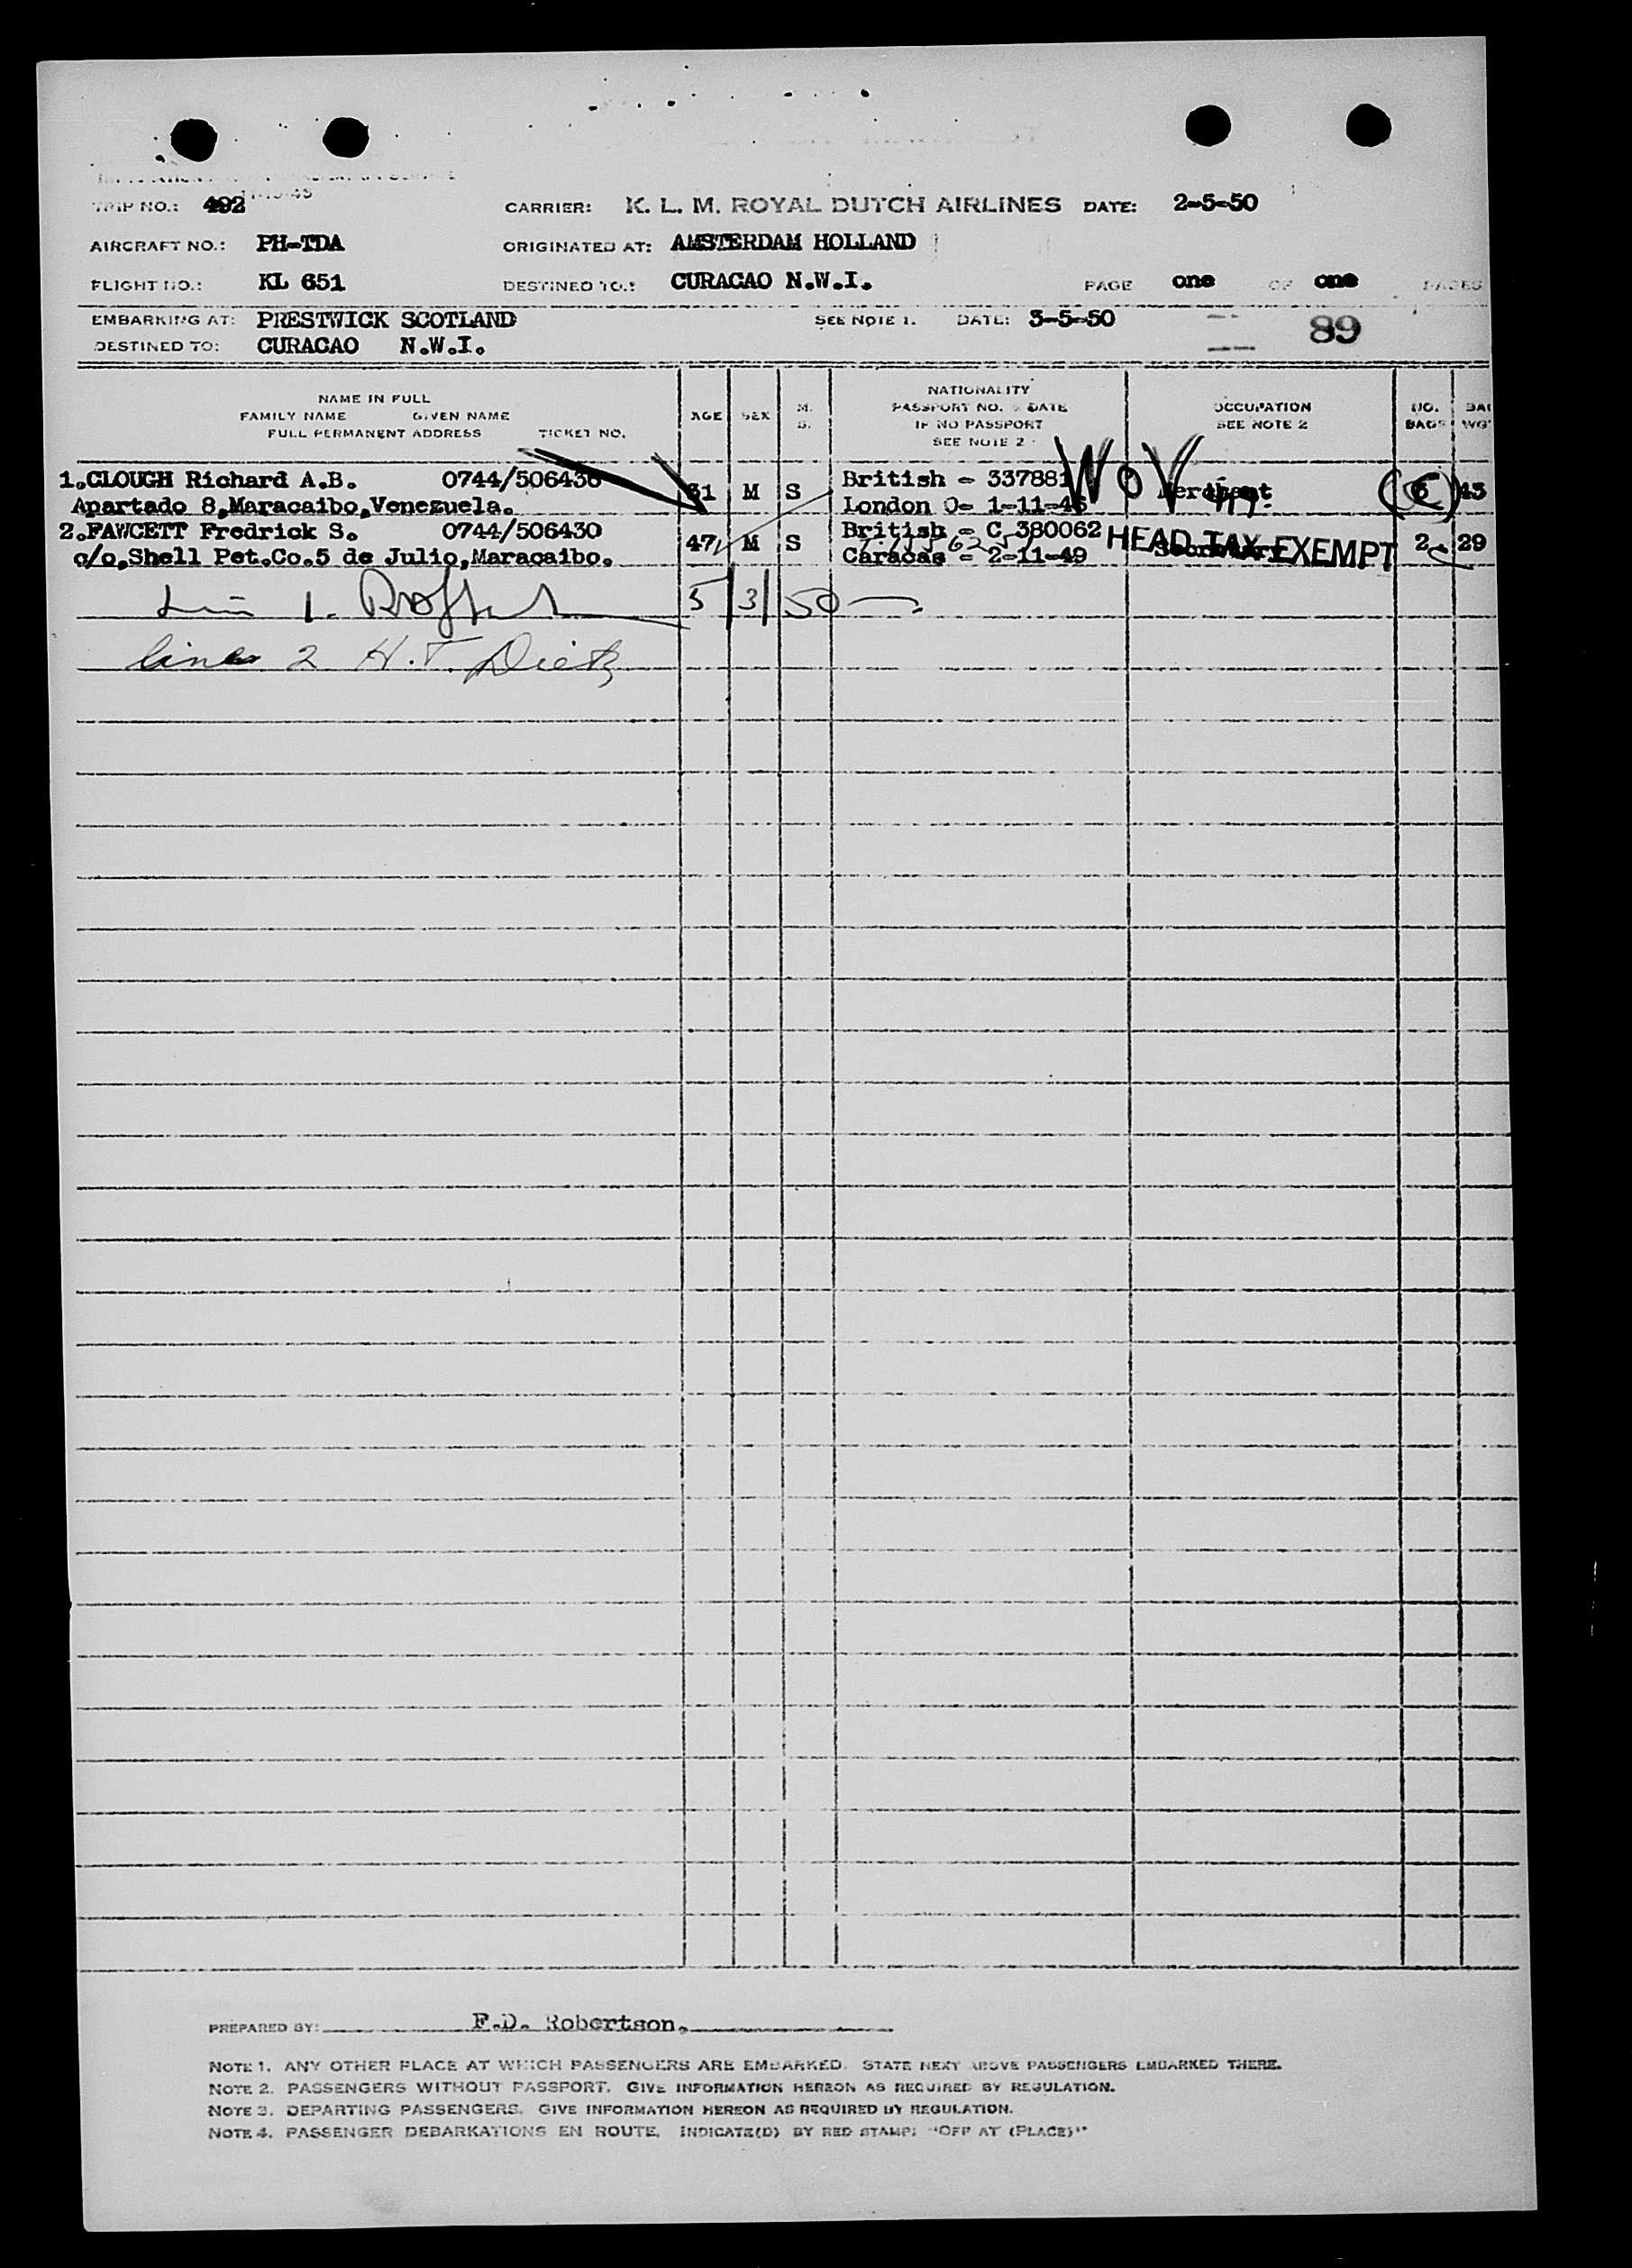 TRIP NO.: 492
CARRIER: K. L. M. ROYAL DUTCH AIRLINES DATE: 2-5-50
AIRCRAFT NO.: PH-TDA ORIGINATED AT: AMSTERDAM HOLLAND
FLIGHT NO.: KL 651 DESTINED TO: CURACAO N.W.I. PAGE one OF one PAGES
EMBARKING AT: PRESTWICK SCOTLAND SEE NOTE 1. DATE: 3-5-50
89
DESTINED TO: CURACAO N.W.I.
NAME IN FULL
FAMILY NAME GIVEN NAME
FULL PERMANENT ADDRESS TICKET NO.
AGE SEX M. S.
NATIONALITY
PASSPORT NO. & DATE
IF NO PASSPORT
SEE NOTE 2
OCCUPATION
SEE NOTE 2
NO. BAGS
WGT
1.CLOUGH Richard A.B. 0744/506436 M S British - 337881 WOV Merchant 43
Apartado 8,Maracaibo,Venezuela. London O- 1-11-46
2.FAWCETT Fredrick S. 0744/506430 47 M S British - C 380062 HEAD TAX EXEMPT Secretary 2 29
c/o,Shell Pet.Co.5 de Julio,Maracaibo. Caracas - 2-11-49
1. 5/3/50
lines 2 H.T. Dietz
PREPARED BY: F.D. Robertson.
NOTE 1. ANY OTHER PLACE AT WHICH PASSENGERS ARE EMBARKED. STATE NEXT ABOVE PASSENGERS EMBARKED THERE.
NOTE 2. PASSENGERS WITHOUT PASSPORT. GIVE INFORMATION HEREON AS REQUIRED BY REGULATION.
NOTE 3. DEPARTING PASSENGERS. GIVE INFORMATION HEREON AS REQUIRED BY REGULATION.
NOTE 4. PASSENGER DEBARKATIONS EN ROUTE, INDICATE(D) BY RED STAMP: "OFF AT (PLACE)"